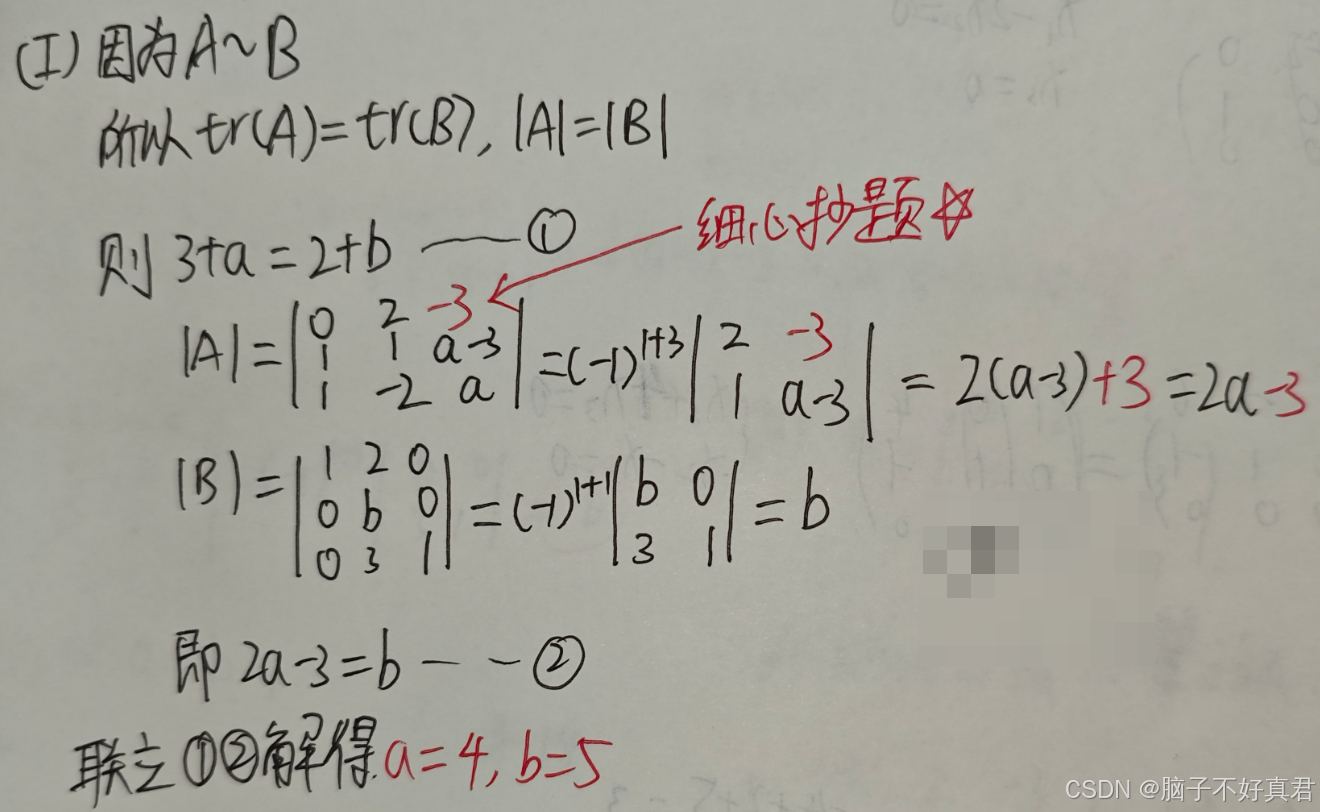 (I) 因为A~B
所以 tr(A)=tr(B), |A|=|B|
细心抄题☆
则 3+a=2+b ——①
|A|=|0 2 -3; 1 1 a-3; 1 -2 a|=(-1)^{1+3}|2 -3; 1 a-3|=2(a-3)+3=2a-3
|B|=|1 2 0; 0 b 0; 0 3 1|=(-1)^{1+1}|b 0; 3 1|=b
即 2a-3=b - -②
联立①②解得 a=4, b=5
CSDN @脑子不好真君